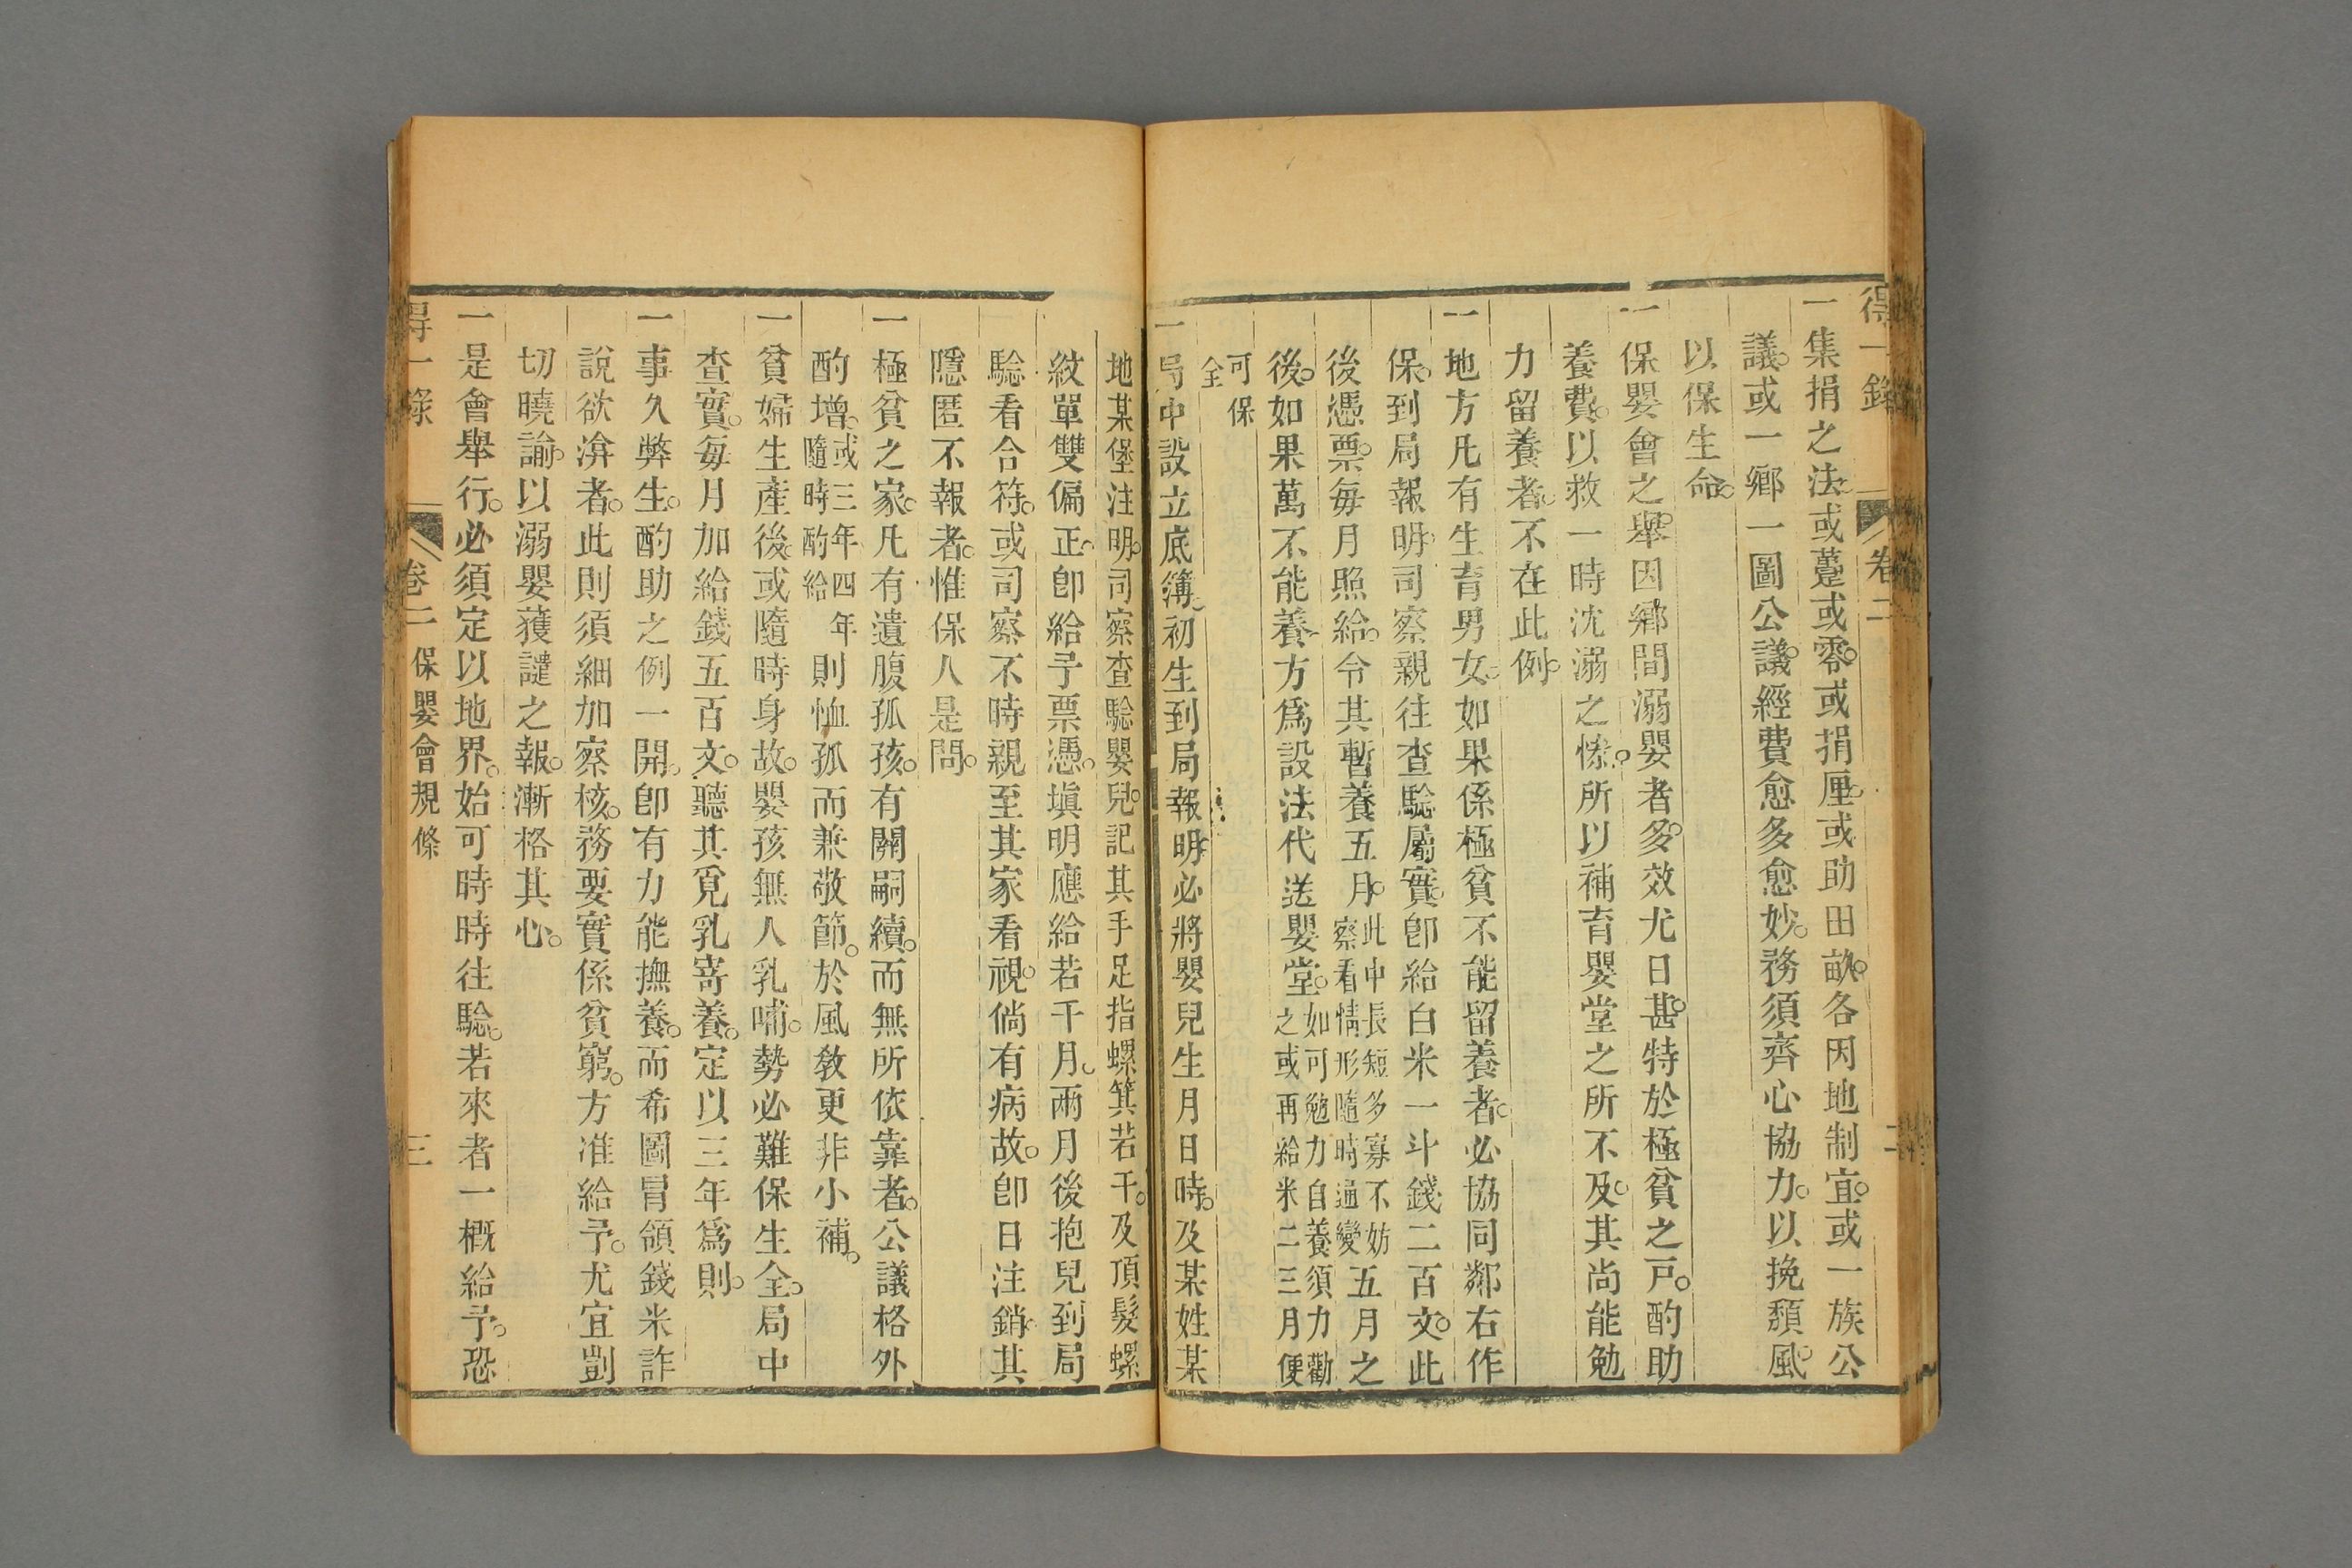 得一錄 卷二 二
一集捐之法。或躉或零。或捐厘。或助田畝。各因地制宜。或一族公
議。或一鄉一圖公議。經費愈多愈妙。務須齊心協力。以挽頹風。
以保生命。
一保嬰會之舉。因鄉間溺嬰者多。效尤日甚。特於極貧之戸。酌助
養費。以救一時沈溺之慘。所以補育嬰堂之所不及。其尚能勉
力留養者。不在此例。
一地方凡有生育男女。如果係極貧不能留養者。必協同鄰右作
保。到局報明。司察親往查驗屬實。卽給白米一斗錢二百文。此
後憑票。每月照給。令其暫養五月。此中長短多寡不妨察看情形隨時通變五月之
後。如果萬不能養。方爲設法代送嬰堂。如可勉力自養須力勸之或再給米二三月便
可保全
一局中設立底簿。初生到局報明。必將嬰兒生月日時。及某姓某
地某堡注明。司察查驗嬰兒。記其手足指螺箕若干。及頂髮螺
紋單雙偏正。卽給予票憑。塡明應給若干月。兩月後抱兒到局
驗看合符。或司察不時親至其家看視。倘有病故。卽日注銷。其
隱匿不報者。惟保人是問。
一極貧之家。凡有遺腹孤孩。有關嗣續。而無所依靠者。公議格外
酌增。或三年四年隨時酌給則恤孤而兼敬節。於風敎更非小補。
一貧婦生產後。或隨時身故。嬰孩無人乳哺。勢必難保生全。局中
查實。每月加給錢五百文。聽其覓乳寄養。定以三年爲則。
一事久弊生。酌助之例一開。卽有力能撫養。而希圖冒領錢米詐
說欲渰者。此則須細加察核。務要實係貧窮。方准給予。尤宜剴
切曉諭。以溺嬰獲譴之報。漸格其心。
一是會舉行。必須定以地界。始可時時往驗。若來者一槪給予。恐
得一錄 卷二 保嬰會規條 三